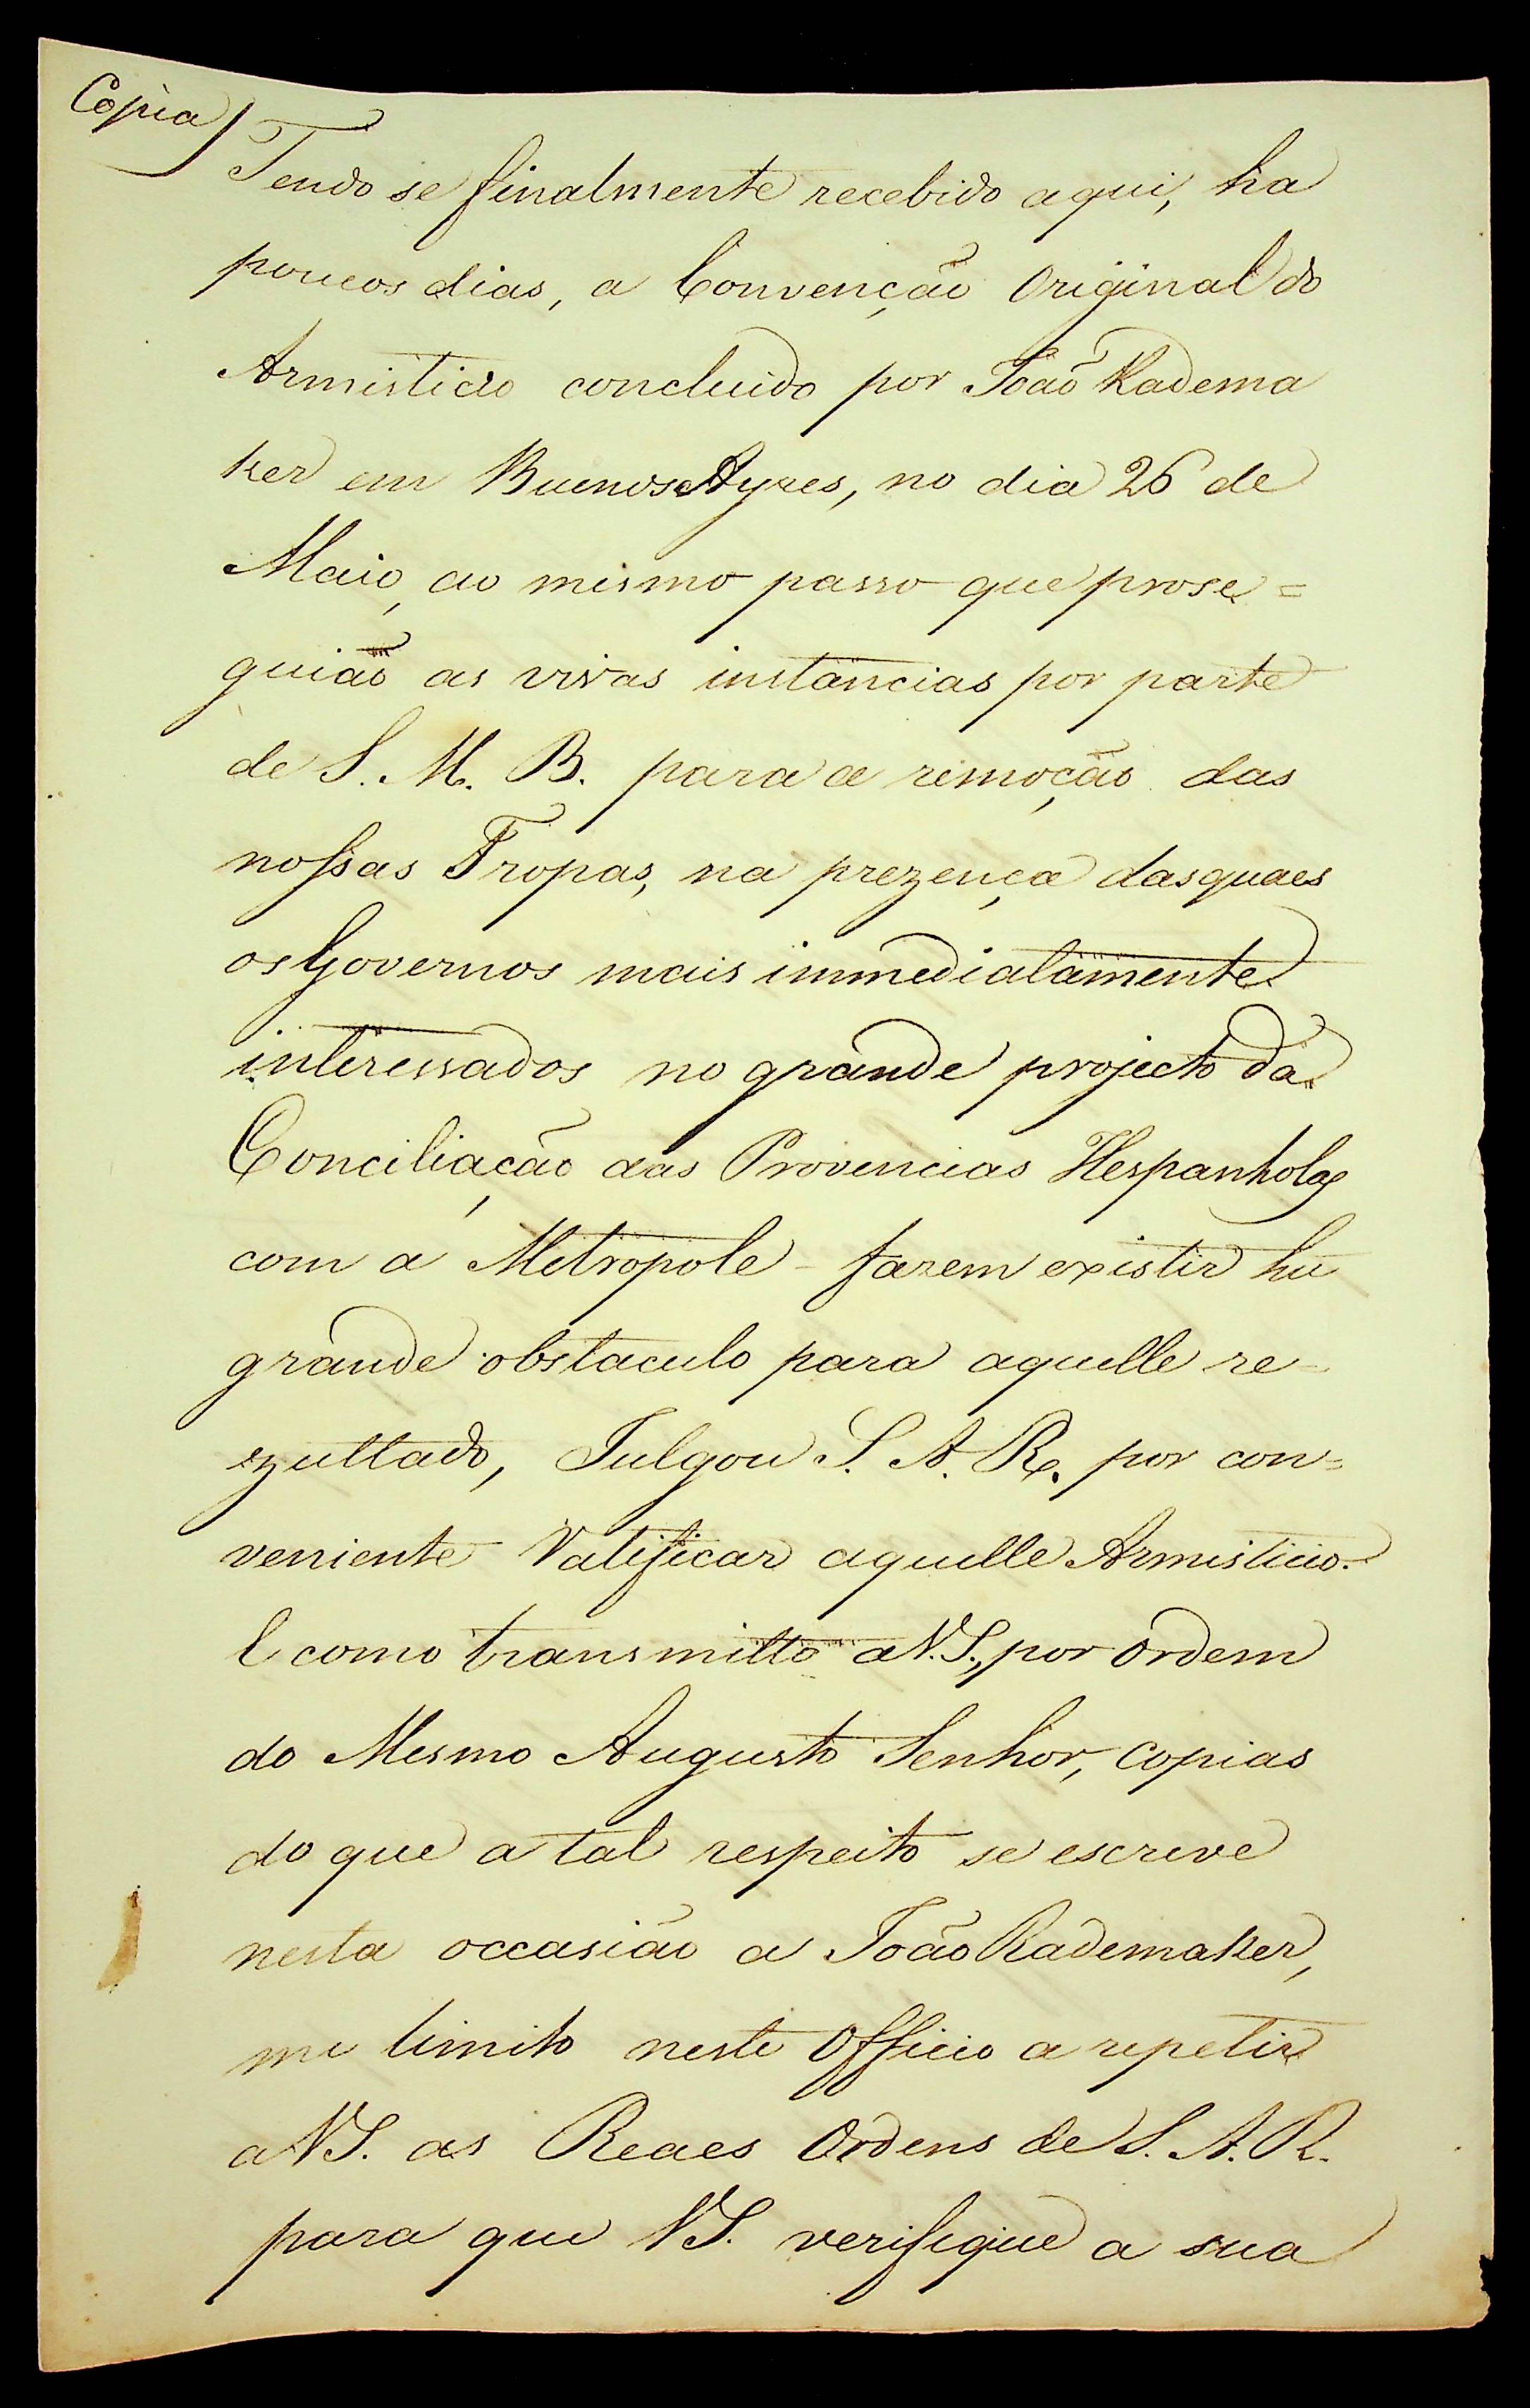 Copia
Tendo se finalmente recebido aqui, ha
poucos dias, a Convenção Original do
Armisticio concluido por João Radema
ker em Buenos Ayres, no dia 26 de
Maio, ao mesmo passo que prose=
guião as vivas instancias por parte
de S. M. B. para a remoção das
nossas Tropas, na prezença dasquaes
os Governos mais immediatamente
interessados no grande projecto da
Conciliação das Provincias Hespanholas
com a Metropole - fazem existir hũ
grande obstaculo para aquelle re-
zultado, Julgou S. A. R. por con=
veniente Ratificar aquelle Armisticio.
E como transmitto a V.S., por ordem
do Mesmo Augusto Senhor, copias
do que a tal respeito se escreve
nesta occasião a João Rademaker,
me limito neste Officio a repetir
a VS. as Reaes Ordens de S. A. R.
para que VS. verifique a sua